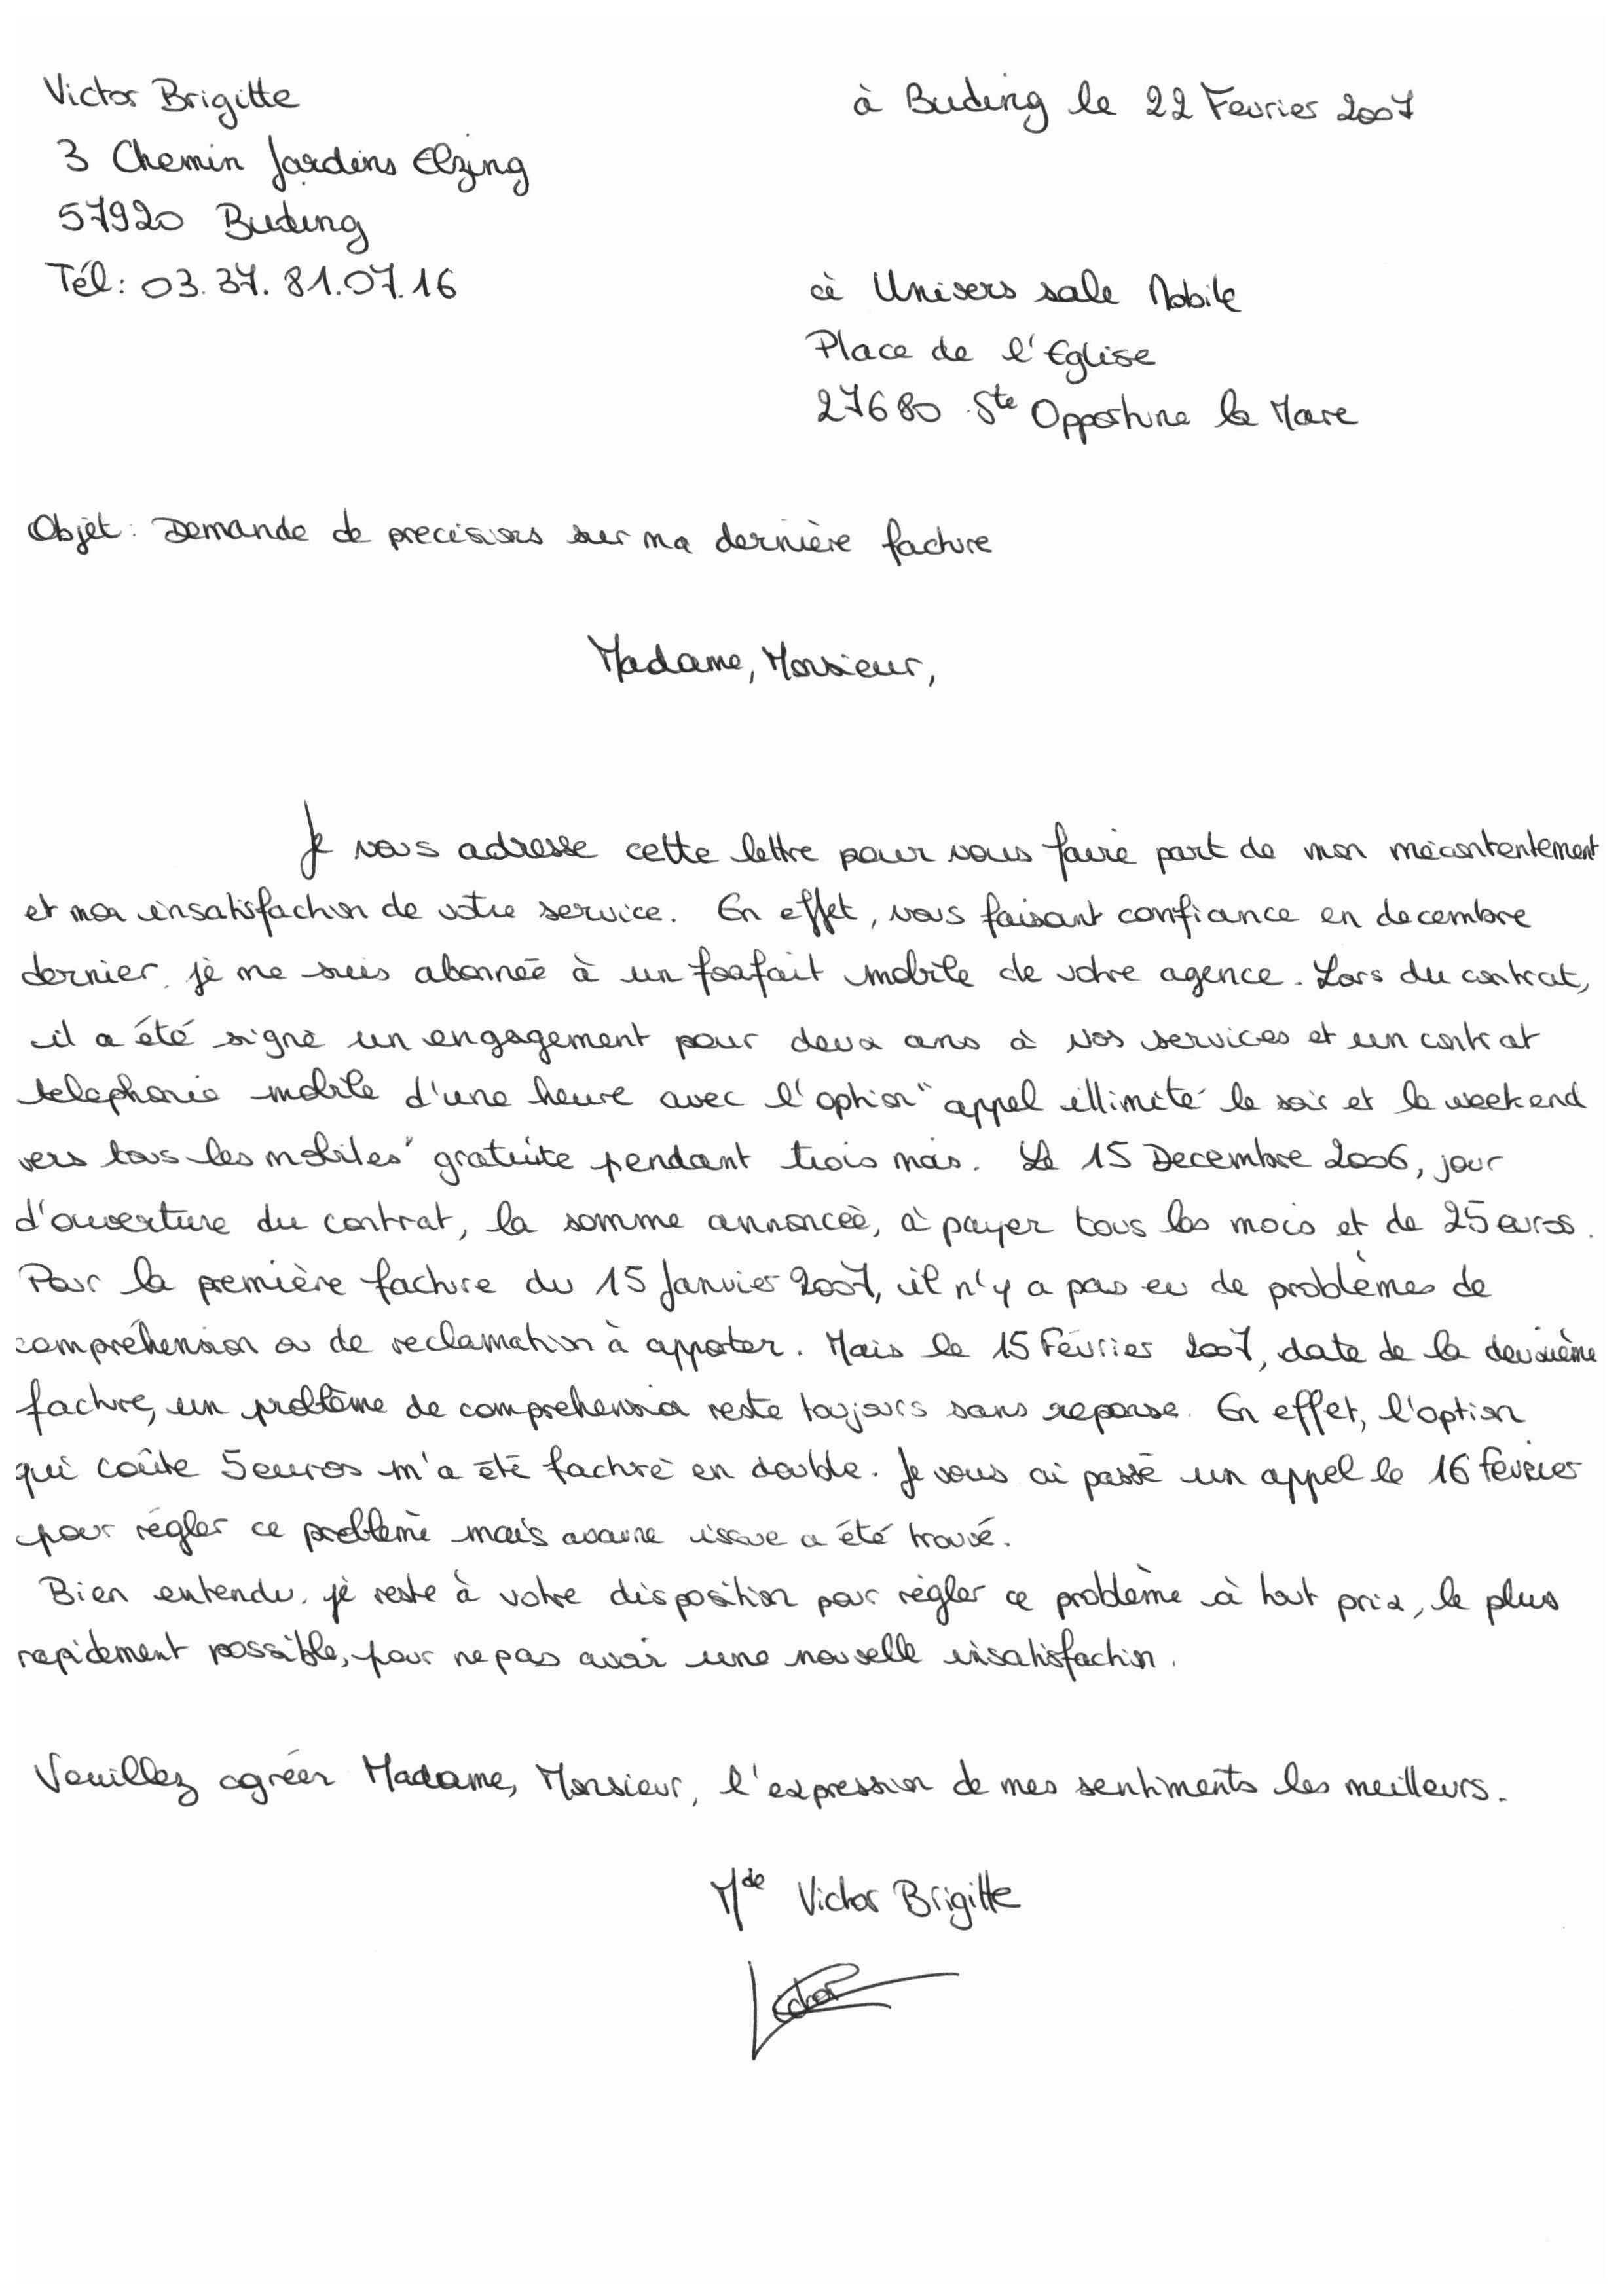 Victor Brigitte
à Buding le 22 Fevrier 2007
3 Chemin Jardins Elzing
57920 Buding
Tél: 03.37.81.07.16
à Univers sale Mobile
Place de l'Eglise
27680 Ste Opportune la Mare
Objèt: Demande de precisions sur ma dernière facture
Madame, Monsieur,
Je vous adresse cette lettre pour vous faire part de mon mécontentement
et mon insatisfaction de votre service. En effet, vous faisant confiance en decembre
dernier, je me suis abonnée à un forfait mobile de votre agence. Lors du contrat,
il a été signé un engagement pour deux ans à vos services et un contrat
telephonie mobile d'une heure avec l'option "appel illimité le soir et le weekend
vers tous les mobiles" gratuite pendant trois mois. Le 15 Decembre 2006, jour
d'ouverture du contrat, la somme annoncée, à payer tous les mois et de 25 euros.
Pour la première facture du 15 Janvier 2007, il n'y a pas eu de problèmes de
compréhension ou de reclamation à apporter. Mais le 15 Février 2007, date de la deuxième
facture, un problème de comprehension reste toujours sans reponse. En effet, l'option
qui coûte 5 euros m'a été facturé en double. Je vous ai passé un appel le 16 février
pour régler ce problème mais aucune issue a été trouvé.
Bien entendu, je reste à votre disposition pour régler ce problème à tout prix, le plus
rapidement possible, pour ne pas avoir une nouvelle insatisfaction.
Veuillez agréer Madame, Monsieur, l'expression de mes sentiments les meilleurs.
Mde Victor Brigitte
Victor